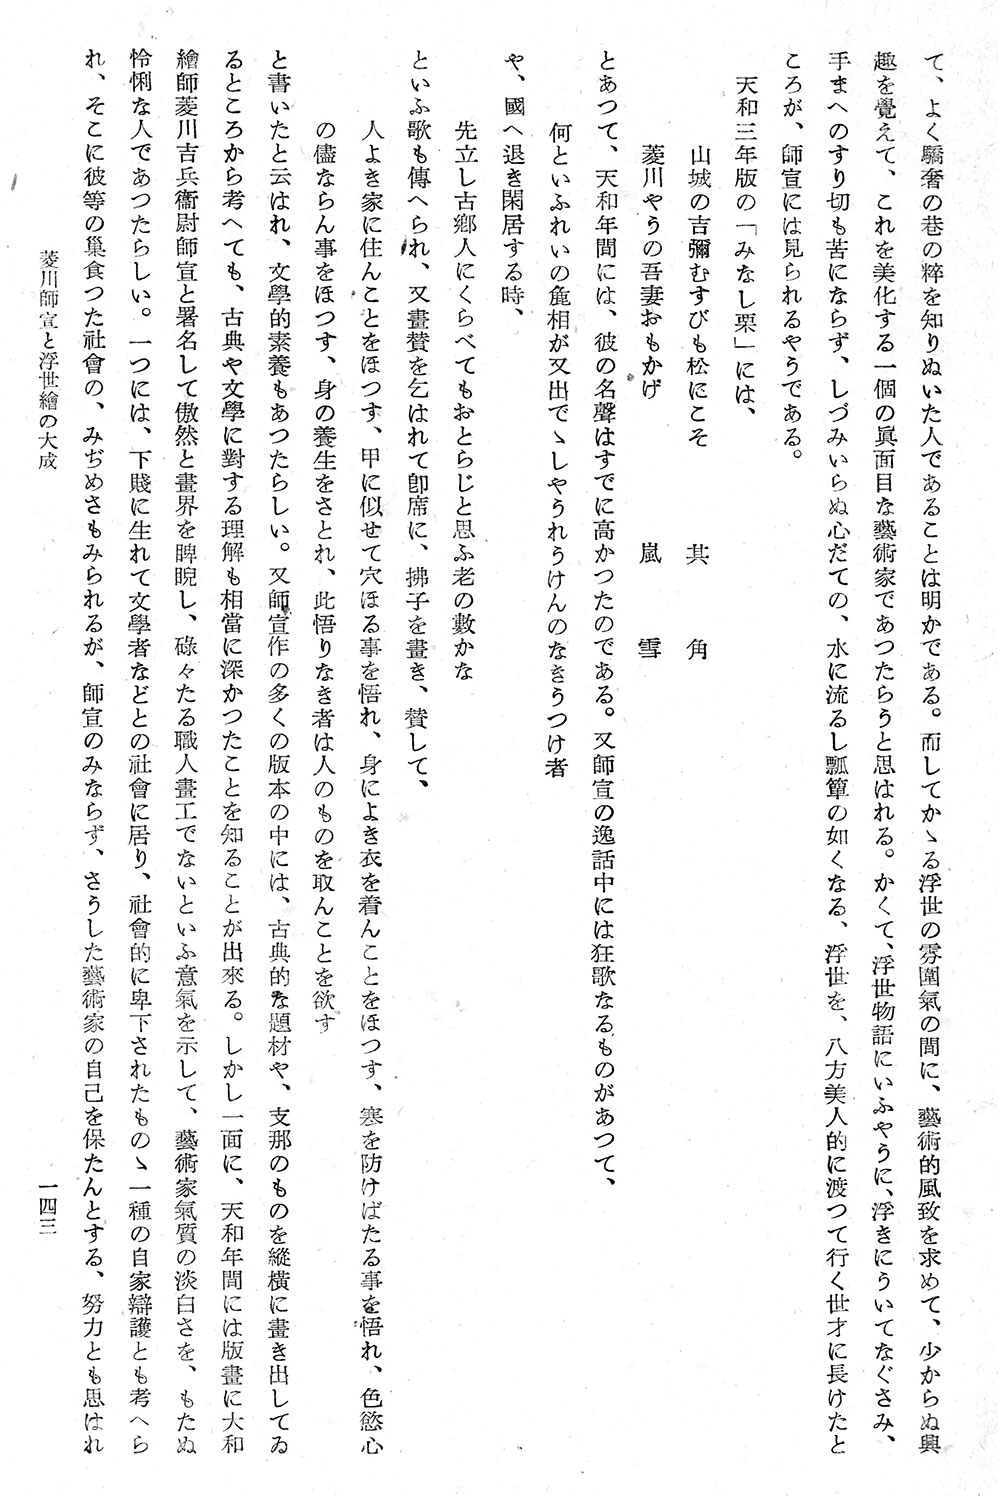 て、よく驕奢の巷の粹を知りぬいた人であることは明かである。而してかゝる浮世の雰圍氣の間に、藝術的風致を求めて、少からぬ興
趣を覺えて、これを美化する一個の眞面目な藝術家であつたらうと思はれる。かくて、浮世物語にいふやうに、浮きにういてなぐさみ、
手まへのすり切も苦にならず、しづみいらぬ心だての、水に流るし瓢簞の如くなる、浮世を、八方美人的に渡つて行く世才に長けたと
ころが、師宣には見られるやうである。
天和三年版の「みなし栗」には、
山城の吉彌むすびも松にこそ　其角
菱川やうの吾妻おもかげ　嵐雪
とあつて、天和年間には、彼の名聲はすでに高かつたのである。又師宣の逸話中には狂歌なるものがあつて、
何といふれいの麁相が又出でゝしやうれうけんのなきうつけ者
や、國へ退き閑居する時、
先立し古鄕人にくらべてもおとらじと思ふ老の數かな
といふ歌も傳へられ、又畫贊を乞はれて卽席に、拂子を畫き、贊して、
人よき家に住んことをほつす、甲に似せて穴ほる事を悟れ、身によき衣を着んことをほつす、寒を防けばたる事を悟れ、色慾心
の儘ならん事をほつす、身の養生をさとれ、此悟りなき者は人のものを取んことを欲す
と書いたと云はれ、文學的素養もあつたらしい。又師宣作の多くの版本の中には、古典的な題材や、支那のものを縱橫に畫き出してゐ
るところから考へても、古典や文學に對する理解も相當に深かつたことを知ることが出來る。しかし一面に、天和年間には版畫に大和
繪師菱川吉兵衞尉師宣と署名して傲然と畫界を睥睨し、碌々たる職人畫工でないといふ意氣を示して、藝術家氣質の淡白さを、もたぬ
怜悧な人であつたらしい。一つには、下賤に生れて文學者などとの社會に居り、社會的に卑下されたものゝ一種の自家辯護とも考へら
れ、そこに彼等の巢食つた社會の、みぢめさもみられるが、師宣のみならず、さうした藝術家の自己を保たんとする、努力とも思はれ
菱川師宣と浮世繪の大成
一四三